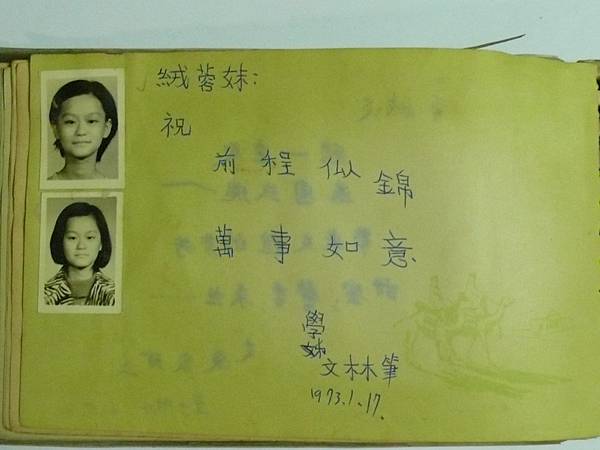 絨蓉妹:
祝
前程似錦
萬事如意
學
姊
文林筆
1973.1.17.